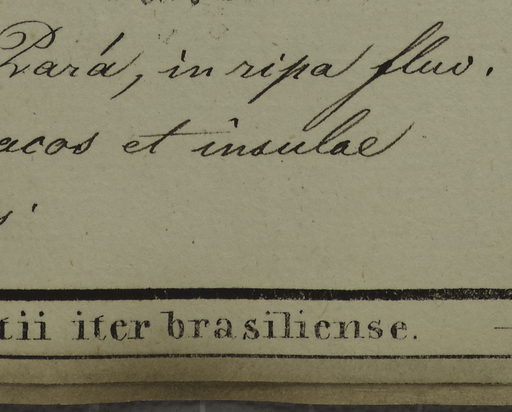 Pará, in ripa fluv.
acos et insulae
s.
tii iter brasiliense.